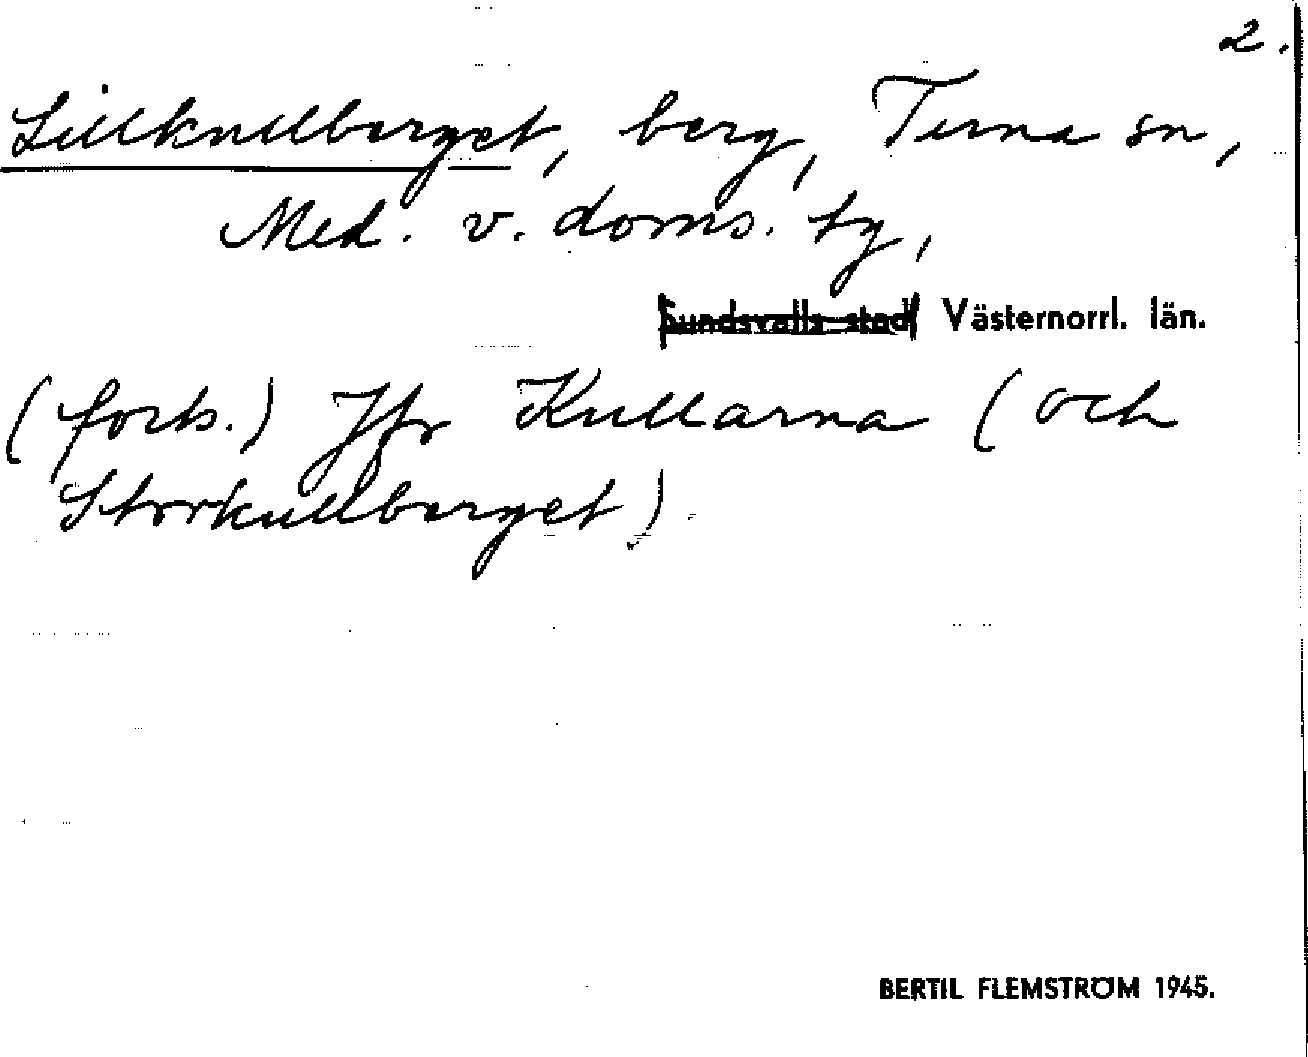 2.
Lillkullberget, berg, Tuna sn,
Med. v. doms. tg,
Sundsvalls stad Västernorrl. län.
(forts.) Jfr Kullarna (och
Storkullberget)
BERTIL FLEMSTRÖM 1945.